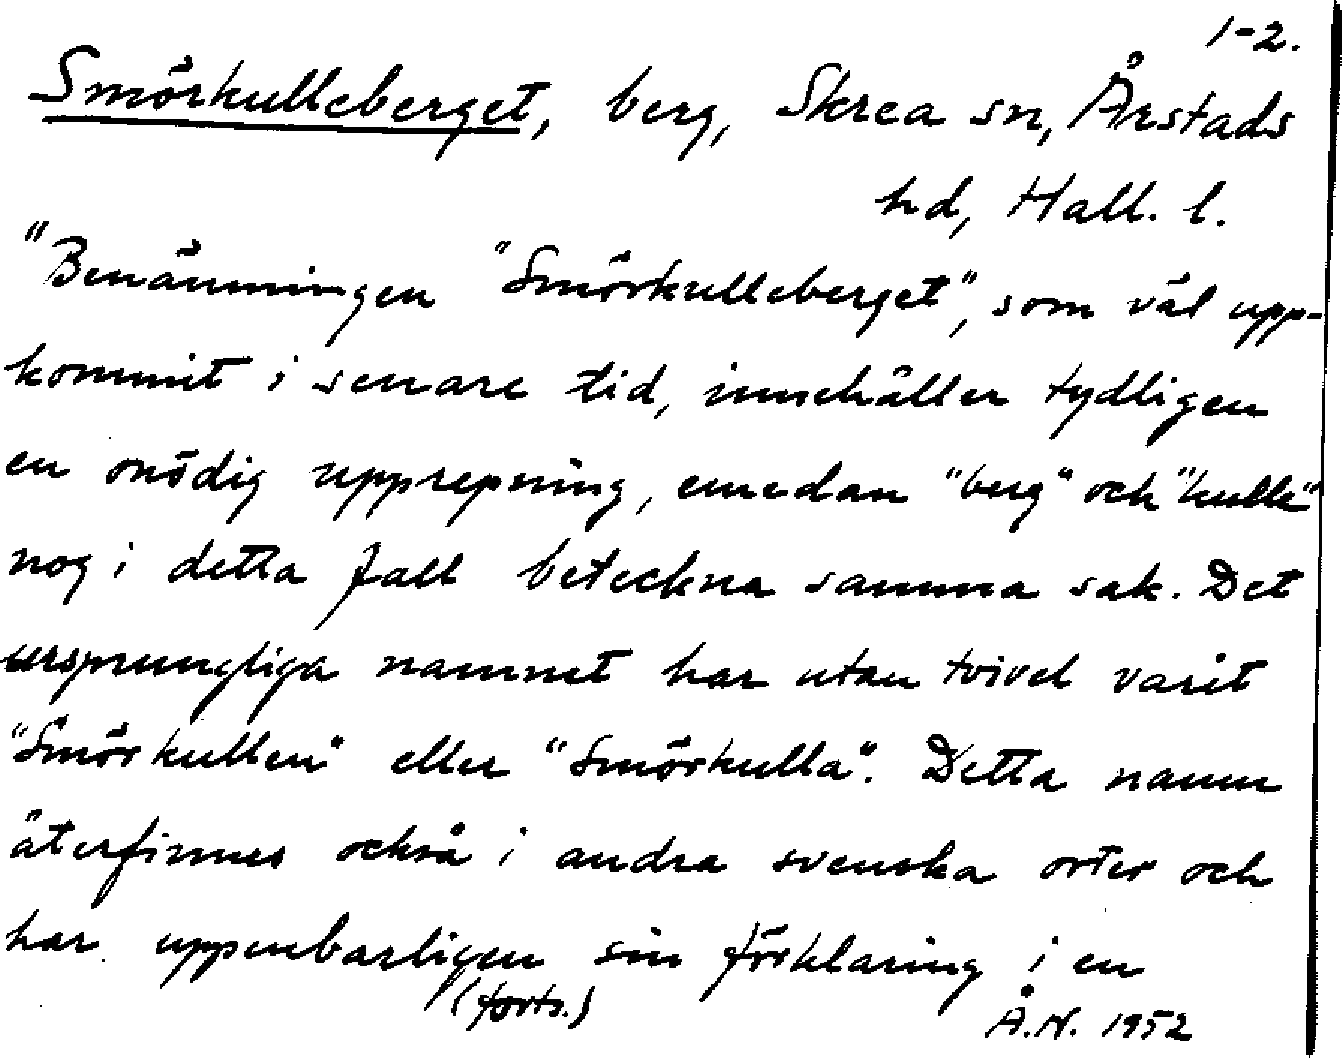 1-2.
Smörkulleberget, berg, Skrea sn, Årstads
hd, Hall. l.
"Benämningen "Smörkulleberget", som väl upp-
kommit i senare tid, innehåller tydligen
en onödig upprepning, emedan "berg" och "kulle"
nog i detta fall beteckna samma sak. Det
ursprungliga namnet har utan tvivel varit
"Smörkullen" eller "Smörkulla". Detta namn
återfinnes också i andra svenska orter och
har uppenbarligen sin förklaring i en
(forts.)
Å.N. 1952